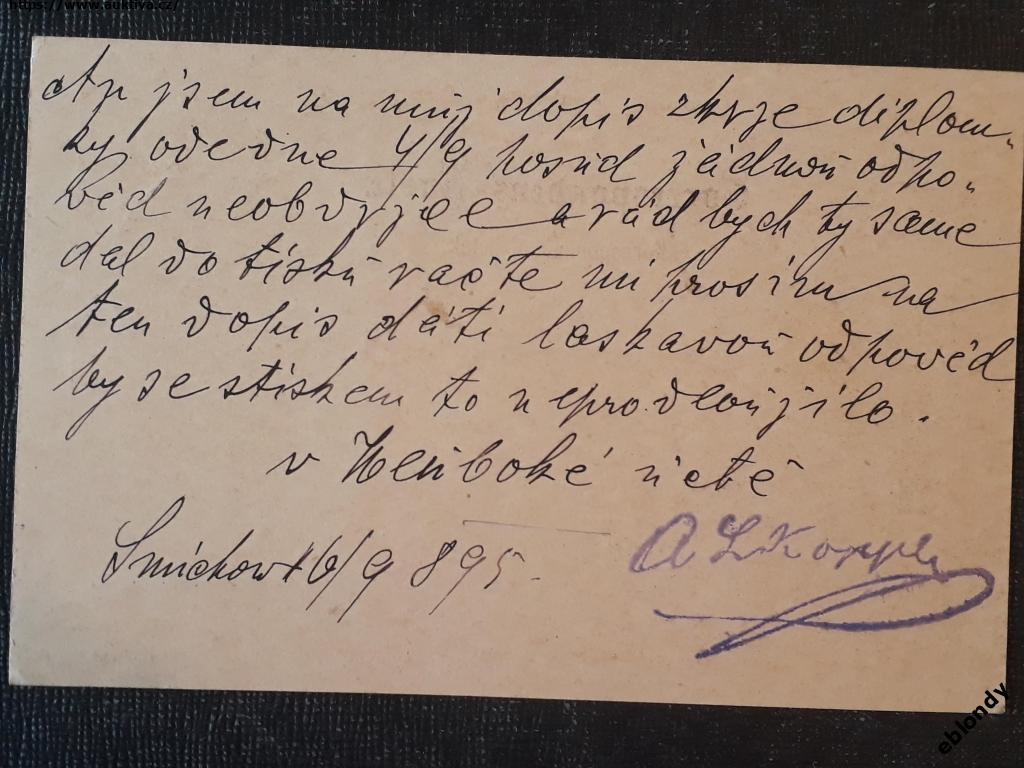 https://www.auktiva.cz/
jsem na můj dopis skrze diplom„
ky ode dne 4/9 posud žádnou odpo„
věd neobdržel a rád bych ty same
dal do tisku račte mi prosím na
ten dopis dáti laskavou odpověd
by se stiskem to neprodloužilo.
v Hluboké úctě
Smíchow 16/9 895.
eblondy